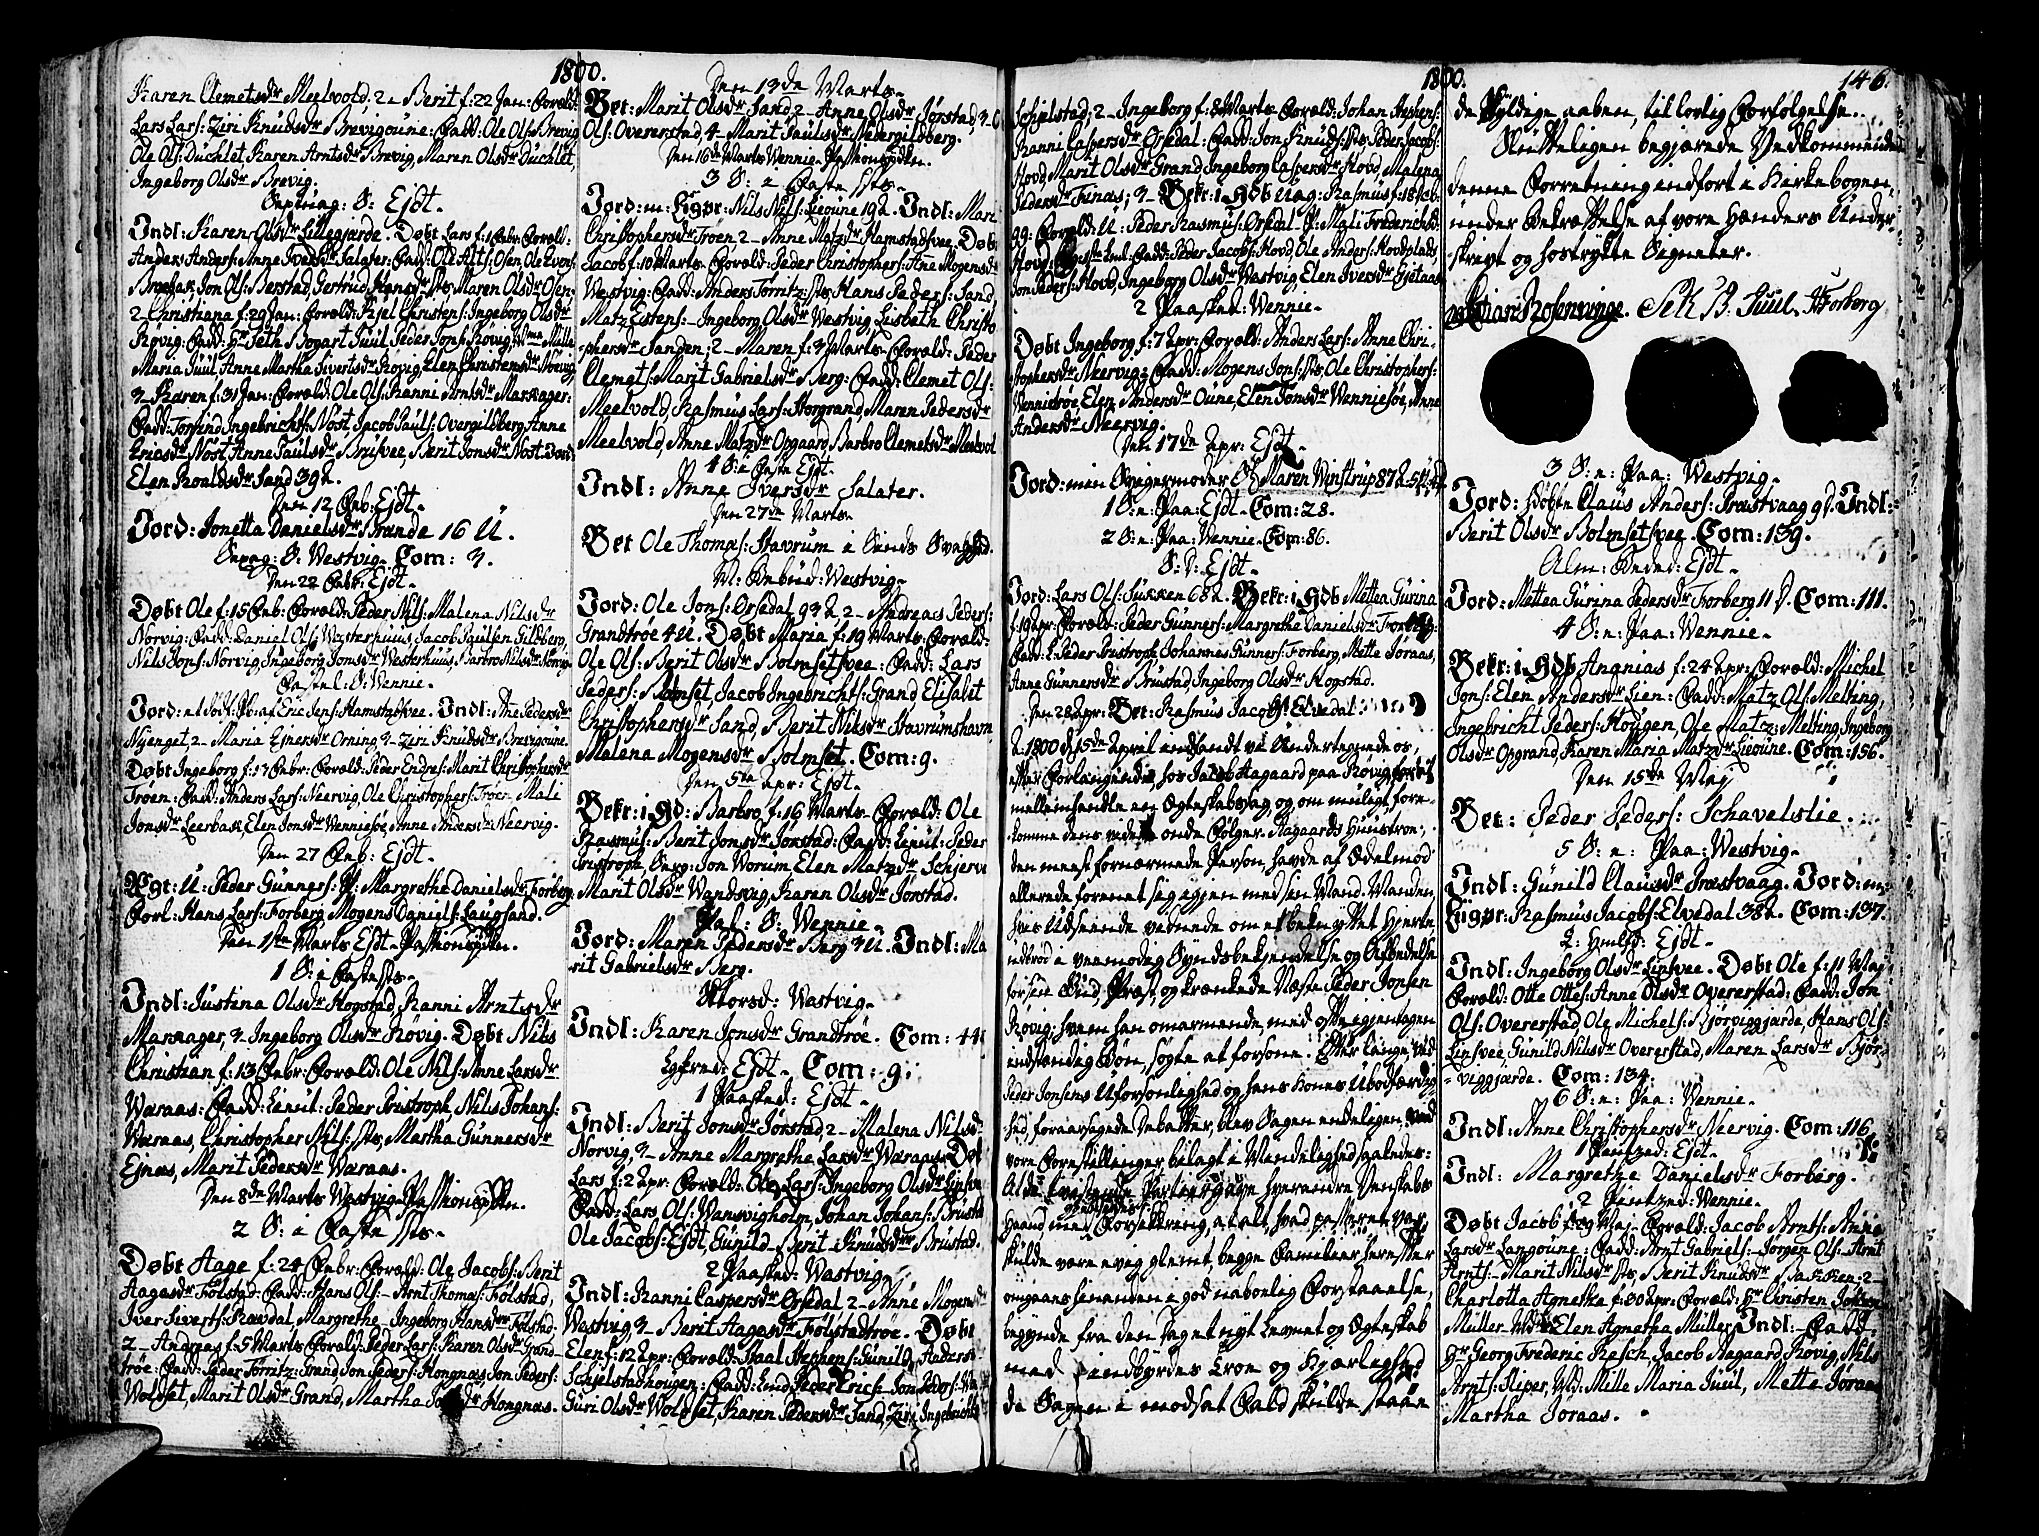 1800.
Karen Clemetsdr Meelvold; 2- Berit f: 22 Jan: Foræld:
Lars Lars: Ziri Knudsdr Brevigoune: Fadd: Ole Ols: Brevig
Ole Ols: Duchlet Karen Arntsdr Brevig, Maren Olsdr Duchlet,
Ingeborg Olsdr Brevig.
S: Ejdt.
Indl: Karen Olsdr Lillegjærde. Døbt Lars f: 1 Febr: Foræld:
Anders Anders: Anne Iversdr Salater: Fadd: Ole Olsen Ole Evens:
Jon Ols: Berstad, Gertrud Hansdr sts, Maren Olsdr Oen-
2- Christiana f: 29 Jan: Foræld: Kjel Christens: Ingeborg Olsdr
Røvig: Fadd: Hr Seth Bogart Juul Peder Jons: Røvig, Mille
Maria Juul Anne Martha Sivertsdr Røvig, Elen Christensdr Røvig
3- Karen f: 31 Jan: Foræld: Ole Ols: Ranni Arntsdr Markager:
Fadd: Torsind Ingebrichts: Nost, Jacob Pauls: Overgilberg, Anne
Ericsdr Nost Anne Paulsdr Brusvee, Berit Jonsdr Nost Jord:
Elen Roaldsdr Sand 39 A.
Den 12 Feb: Ejdt.
Jord: Jonetta Danielsdr Strande 16 U.
S: Westvig. Com: 3.
Den 22 Feb: Ejdt.
Døbt Ole f: 15 Feb: Foræld: Peder Nils: Malena Nilsdr
Norvig: Fadd: Daniel Ols: Westerhuus, Jacob Paulsen Gilberg,
Nils Jons: Norvig, Ingeborg Jonsdr Westerhuus, Barbro Nilsdr Norvig
Fastel: S: Wennie.
Jord: et død: af Eric Jens: Hamstadsvee. Indl: Ane Pedersdr
Nyenget 2- Maria Ejnersdr Orning, 3- Ziri Knudsdr Brevigoune.
Døbt Ingeborg f: 13 Febr: Foræld: Peder Endres: Marit Christophersdr
Trøen: Fadd: Anders Lars: Neervig, Ole Christophers: Trøen Mali
Jonsdr Leerbak Elen Jonsdr Wenniesøe, Anne Andersdr Neervig.
Den 27 Feb: Ejdt.
Ægt: U: Peder Gunners: P: Margrethe Danielsdr Forberg
Forl: Hans Lars: Forberg Mogens Daniels: Laugsand.
Den 1ste Marts Ejdt. Passionspr:
1 S: i Faste sts.
Indl: Justina Olsdr Rogstad, Ranni Arntsdr
Markager, 3- Ingeborg Olsdr Røvig. Døbt Nils
Christian f: 13 Febr: Foræld: Ole Nils: Anne Larsdr
Wæraas: Fadd: Lieut: Peder Tristroph, Nils Johans:
Wæraas, Christopher Nils: sts, Martha Gunnersdr
Ejnæs, Marit Pedersdr Wæraas.
Den 8de Marts Westvig. Passionspr:
2 S: i Faste sts.
Døbt Aage f: 24 Febr: Foræld: Ole Jacobs: Berit
Aagesdr Følstad: Fadd: Hans Ols:- Arnt Thomas: Følstad,
Iver Siverts: Rawdal, Margrethe- Ingeborg Hansdr Følstad-
2- Andreas f: 5 Marts Foræld: Peder Lars: Karen Olsdr Grand-
trøe: Fadd: Peder Torntz: Grand, Jon Peders: Hongnæs Jon Peders:
Woldset, Marit Olsdr Grand, Martha Jonsdr Hongnæs.
Den 13de Marts.
Bet: Marit Olsdr Sand, 2- Anne Olsdr Jørstad, 3-
Ols: Overerstad, 4- Marit Paulsdr Nedergildberg.
Den 16de Marts Wennie. Passionspr:
3 S: i Faste sts.
Jord: m: Kgpr: Nils Nils: Lieoune 19 A. Indl: Mari
Christophersdr Trøen, 2- Anne Matzdr Hamstadsvee. Døbt
Jacob f: 10 Marts Foræld: Peder Christophers: Anne Mogensdr
Westvig: Fadd: Anders Torntz: sts, Hans Peders: Sand,
Matz Estens:- Ingeborg Olsdr Westvig Lisbeth Christo-
phersdr Sanden; 2- Maren f: 3 Marts Foræld: Peder
Clemets: Marit Gabrielsdr Berg: Fadd: Clemet Ols:
Meelvold, Rasmus Lars: Storgrand, Maren Pedersdr
Meelvold, Anne Matzdr Opgaard, Barbro Clemetsdr Meelvol
4 S: i Faste Ejdt.
Indl: Anne Iversdr Salater.
Den 27de Marts.
Bet Ole Thomæs: Stavrum
M: Bebud: Westvig.
Jord: Ole Jons: Orsedal 93 A 2- Andreas Peders:
Grandtrøe 4 U. Døbt Maria f: 19 Marts Foræld:
Ole Ols: Berit Olsdr Bolmsetsvee: Fadd: Lars
Peders: Bolmset, Jacob Ingebrichts: Grand Elisabet
Christophersdr Sand, Berit Nilsdr Stavrumshavn
Malena Mogensdr Bolmset. Com: 9.
Den 5te Apr: Ejdt.
Bekr: i Hd: Barbro f: 16 Marts Foræld: Ole
Rasmus: Berit Jonsdr Jørstad: Fadd: Lieut: Peder
Tristroph, Serg: Jon Worum Elen Matzdr Schjerve
Marit Olsdr Wandsvig, Karen Olsdr Jørstad.
Pas: S: Wennie.
Jord: Maren Pedersdr Berg 3 U. Indl: Ma
rit Gabrielsdr Berg.
Skiersd: Westvig.
Indl: Karen Jonsdr Grandtrøe. Com: 44
Lgfred: Ejdt. Com: 9.
1 Paasked: Ejdt.
Indl: Berit Jonsdr Jørstad, 2- Malena Nilsd
Norvig, 3- Anne Margrethe Larsdr Wæraas. Døbt
Lars f: 2 Apr: Foræld: Ole Lars: Ingeborg Olsdr Linsvee
Fadd: Lars Ols: Wansvigholm, Johan Johans: Brustad
Ole Jacobs: Ejdt, Gunild- Berit- Knudsdr Brustad.
2 Paasked: Westvig.
Indl: Ranni Caspersdr Orsedal 2- Anne Mogensdr
Westvig, 3- Berit Aagesdr Følstadtrøe. Døbt
Elen f: 12 Apr: Foræld: Paal Stephens: Gunild Andersd
Schjelstadhougen: Fadd: Peder Erics: Jon Peders:
Guri Olsdr Woldset, Karen Pedersdr Sand, Ziri Ingebrichtsd
1800.
Schjelstad; 2- Ingeborg f: 8 Marts Foræld: Johan Stephens:
Ranni Caspersdr Orsedal: Fadd: Jon Knuds: sts, Peder Jacobs:
Hovd, Marit Olsdr Grand, Ingeborg Caspersdr Hovd, Malena
Pedersdr Finæs; 3- Bekr: i Hdb Uæg: Rasmus f: 18
99: Foræld: U: Peder Rasmus: Orsedal. P: Mali Fredrichsdr
Hovd, Fadd: Peder Jacobs: Hovd, Ole Anders: Hovdplads,
Jon Peders: Hovd, Ingeborg Olsdr Westvig, Elen Iversdr
2 Paasked: Wennie.
Døbt Ingeborg f: 7 Apr: Foræld: Anders Lars: Anne Chri-
stophersdr Neervig: Fadd: Mogens Jons: sts, Ole Christophers:
Wennietrøe, Elen Andersdr Oune, Elen Jonsdr Wenniesøe, Anne
Andersdr Neervig.
Den 17de Apr: Ejdt.
Jord: min Svigermoder Maren Winstrup 87 A
1 S: e: Paa: Ejdt. Com: 28.
2 S: e: Paa: Wennie. Com: 86.
S: D: Ejdt.
Jord: Lars Ols: Sukken 68 A. Bekr: i Hdb Mettea Gurina
f: 19 Apr: Foræld: Peder Gunners: Margrethe Danielsdr Forberg:
Fadd: L: Peder Tristroph, Johannes Gunners: Forberg, Mette Joraas,
Anne Gunnersdr Brustad, Ingeborg Olsdr Rogstad.
Den 28 Apr: Bet: Rasmus Jacobs: Elvedal
A: 1800 d: 15de April indfandt vi Undertegnede os,
efter Forlangende, hos Jacob Aagaard paa Røvig, for at
mellemhandle en Ægteskabssag, og om muligt fore-
komme dens onde Følger. Aagaards Hustroe,
den meest fornærmede Person, havde af Ædelmod
allerede forenet sig igien med sin Mand. Manden,
hvis Udseende vidnede om et beknyttet Hjerte,
udbrød i veemodig Syndsbekjendelse og Afbedelse
for sin Gud, Præst, og krænkede Næste Peder Jonsen
Røvig; hvem han omarmende, med ofte igientagen
indstændig Bøn, søgte at forsone. Efter lange, ved
Peder Jonsens Uforsonlighed og hans Kones Ubodfærdig-
hed, foraarsagede Debatter, blev Sagen endeligen, ved
vore Forestillinger bilagt i Mindelighed saaledes:
Parter gave hverandre Venskabs
Haand med Forsikring, at alt, hvad passeret var,
skulde være evig glemt, begge Familier herefter
omgaaes hinanden i god nabolig Forstaaelse,
begynde fra den Dag et nyt Levnet og Ægteskab
med indbyrdes Troe og Kjærlighed
da Sagen i modsat Fald skulde staae
146.
de skyldige aaben, til lovlig Forfølgelse.
Slutteligen begjærede Vedkommende
denne Forretning indført i Kirkebogen,
under Bekræftelse af vore Hænders Under-
skrivt og hostrykte Segneter.
Rosenvinge. Set: B: Juul. Forberg
3 S: e: Paa: Westvig.
Jord: Hdøbte Claus Anders: Træstvaag 9 D. Indl:
Berit Olsdr Bolmsetsvee. Com: 139.
Alm: Beded: Ejdt.
Jord: Mettea Gurina Pedersdr Forberg 11 D. Com: 111.
4 S: e: Paa: Wennie.
Bekr: i Hdb Ananias f: 24 Apr: Foræld: Michel
Jons: Elen Andersdr Lien: Fadd: Matz Ols: Melting,
Ingebricht Peders: Hougen, Ole Matz: Melting Ingeborg
Olsdr Opgrand, Karen Maria Matzdr Lieoune. Com: 156.
Den 15de Maj
Bet: Peder Peders: Schavelslie.
5 S: e: Paa: Westvig.
Indl: Gunild Clausdr Træstvaag. Jord: m:
Ligpr: Rasmus Jacobs: Elvedal 38 A. Com: 137.
2: Hmlfd: Ejdt.
Indl: Ingeborg Olsdr Linsvee. Døbt Ole f: 11 Maj
Foræld: Otte Ottes: Anne Olsdr Overerstad: Fadd: Jon
Ols: Overerstad, Ole Michels: Bjørviggjærde, Hans Ols:
Linsvee Gunild Nilsdr Overerstad, Maren Larsdr Bjør-
viggjærde. Com: 134.
6 S: e: Paa: Wennie.
Indl: Anne Christophersdr Neervig. Com: 116.
1 Pintzed: Ejdt.
Indl: Margrethe Danielsdr Forberg.
2 Pintzed: Wennie.
Døbt Jacob f: 29 Maj Foræld: Jacob Arnts: Anne
Larsdr Langoune: Fadd: Arnt Gabriels:- Jørgen Ols:- Arnt
Arnts:- Marit Nilsdr sts, Berit Knudsdr Bakken; 2-
Charlotta Agnetha f: 30 Apr: Foræld: Hr Christen
Müller- Md: Elen Agnetha Müller Indl:- Fadd:
Hr Georg Frederic Resch, Jacob Aagaard Røvig, Nils
Arnts: Sliper, Md: Mille Maria Juul, Mette Joraas
Martha Joraas.